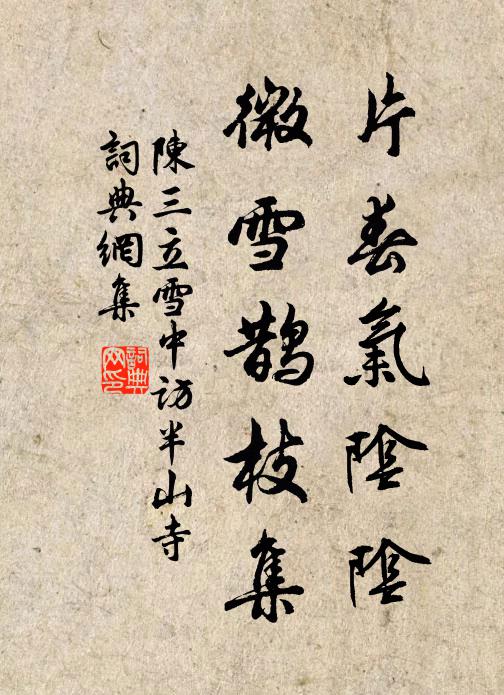 片春氣陰陰
微雪鵲枝集
陳三立雪中訪半山寺
詞典網集
詞典网印